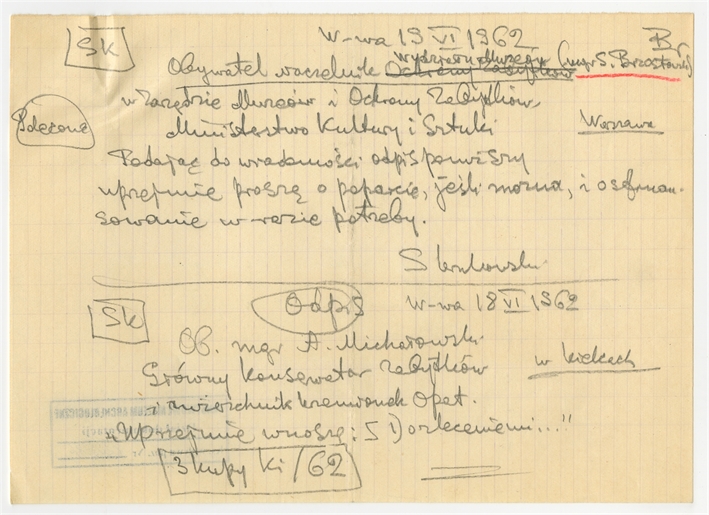 SK W-wa 19 VI 1962 Br
Obywatel naczelnik Wydziału Muzeów Ochrony Zabytków (mgr S. Brzostowski)
w Zarządzie Muzeów i Ochrony Zabytków
Polecone Ministerstwo Kultury i Sztuki Warszawa
Podając do wiadomości odpis poniższy
uprzejmie proszę o poparcie, jeśli można, i o sfinan-
sowanie w razie potrzeby.
Odpis W-wa 18 VI 1962
SK
Ob. mgr A. Michałowski
Główny Konserwator Zabytków
i zwierzchnik Opat. w Kielcach
"Uprzejmie wnoszę: 1) o zleceniem...!"